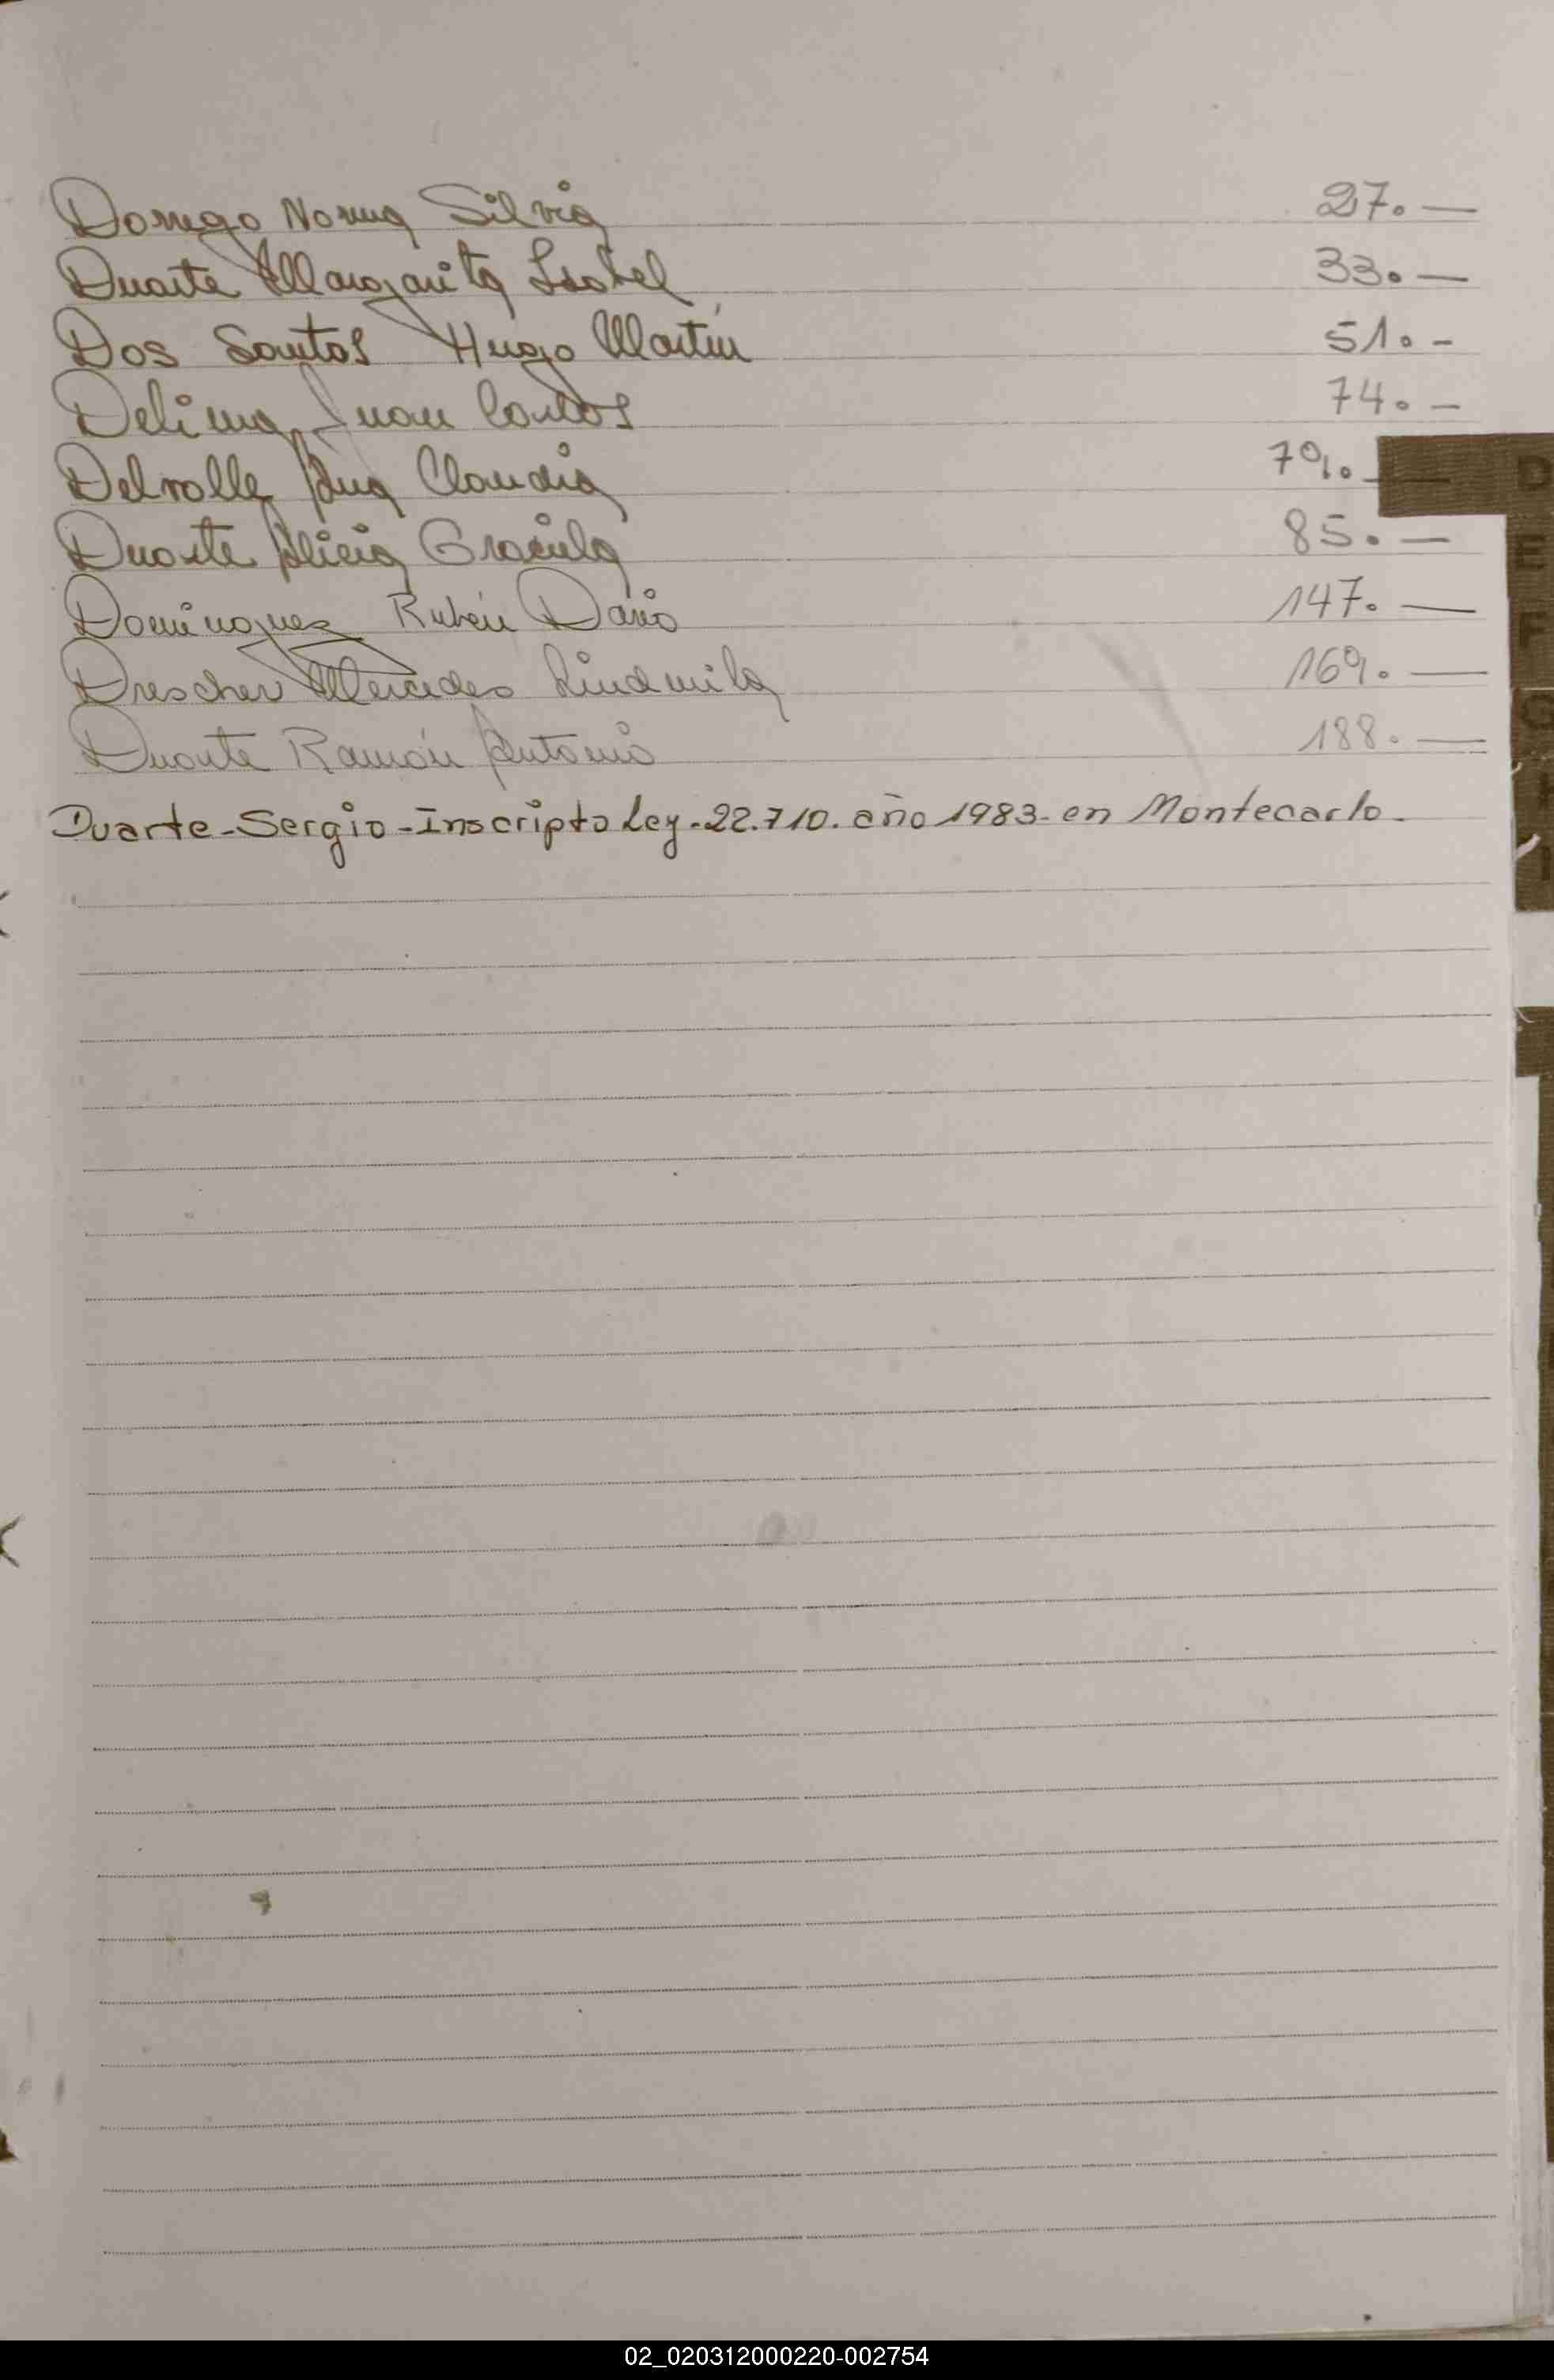 Dorrego Norma Silvia 27.—
Duarte Margarita Isabel 33.—
Dos Santos Hugo Martín 51.-
Delima Juan Carlos 74.—
Delvalle Ana Claudia 79.—
Duarte Alicia Graciela 85.—
Domínguez Rubén Darío 147.—
Drescher Mercedes Lindmila 169.—
Duarte Ramón Antonio 188.—
Duarte-Sergio-Inscripto Ley-22.710. año 1983-en Montecarlo-
D
E
F
G
H
I
02_020312000220-002754